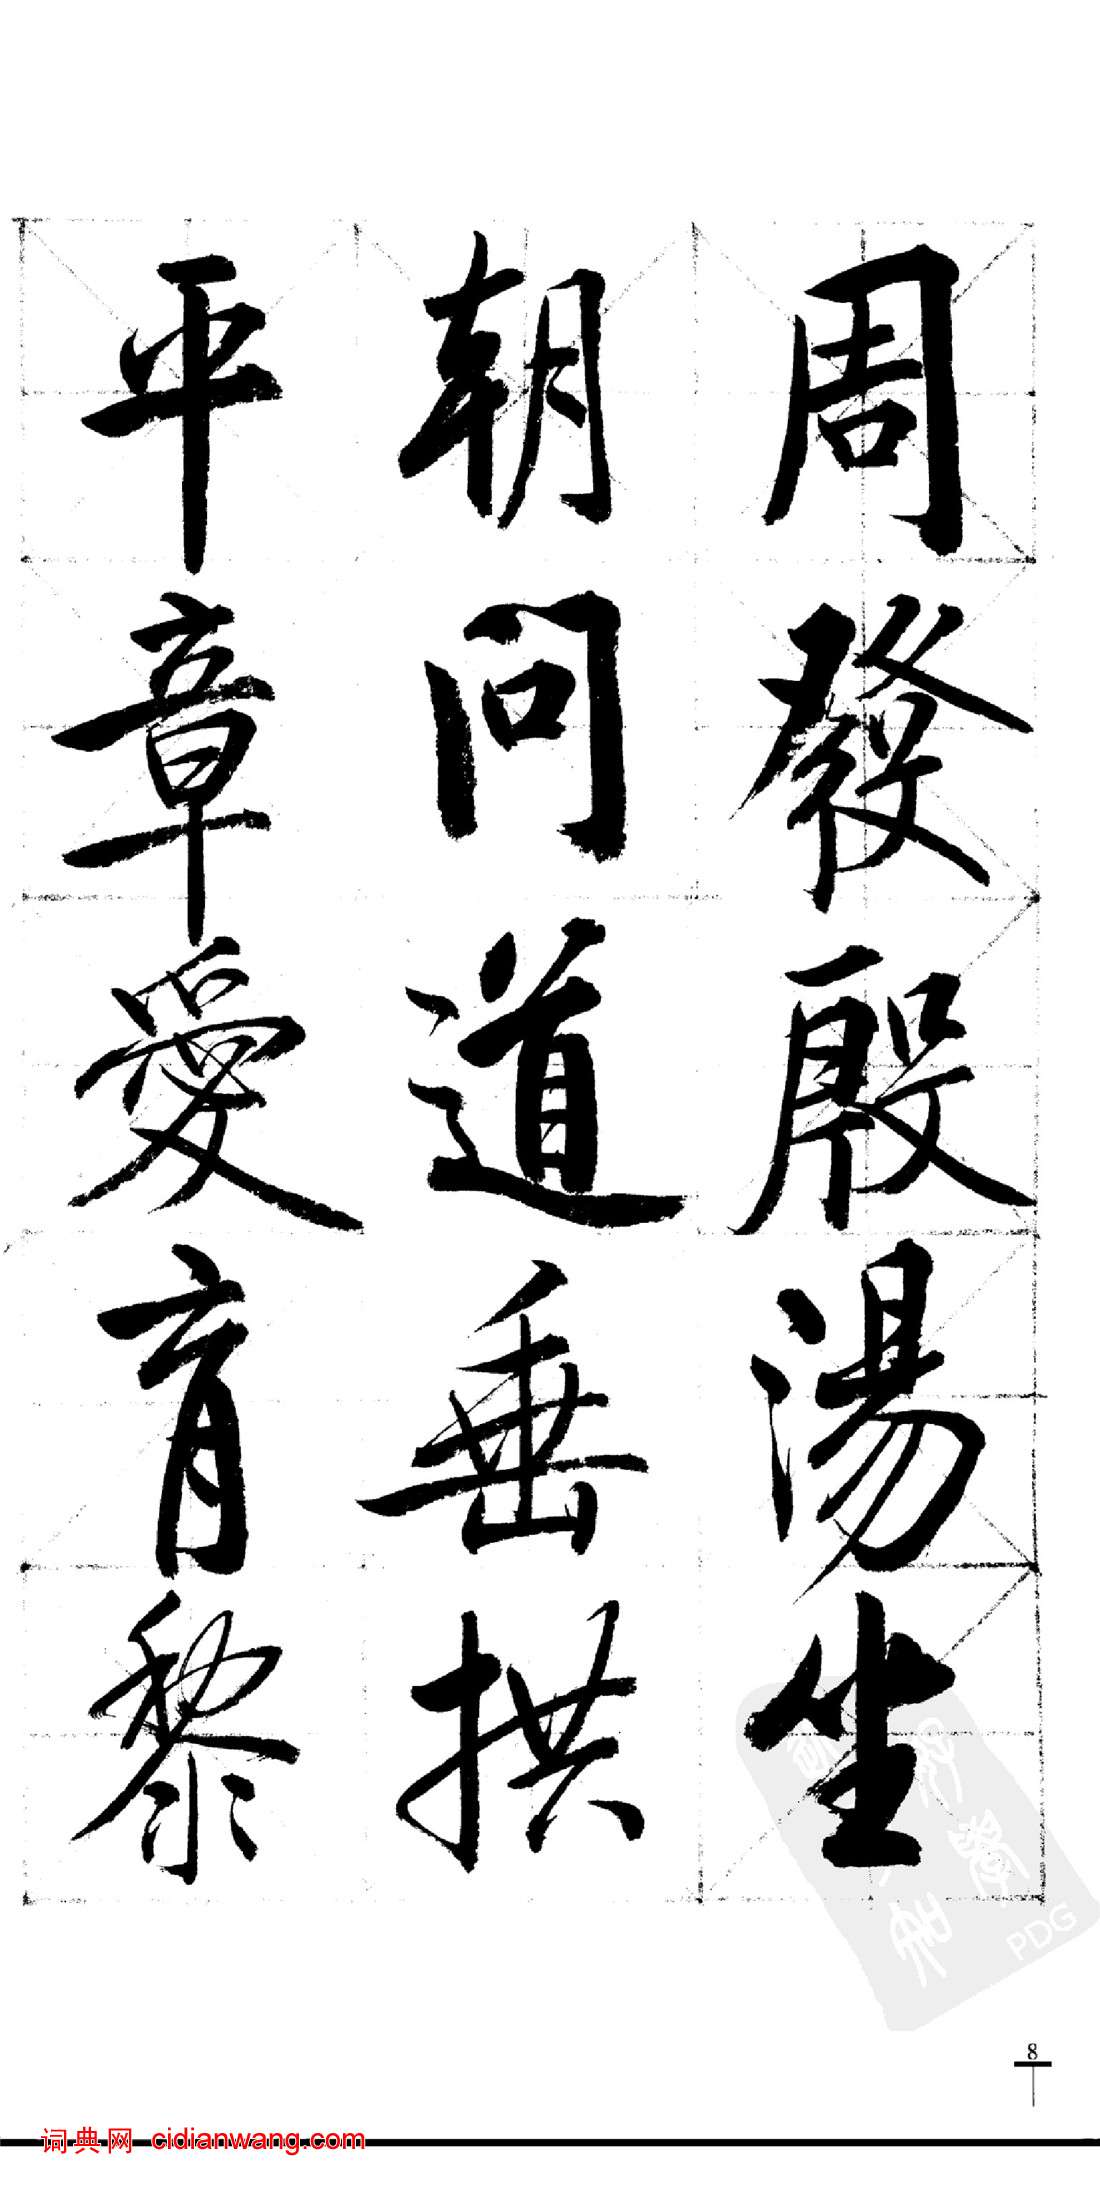 周發殷湯坐
朝問道垂拱
平章愛育黎
PDG
8
词典网 cidianwang.com